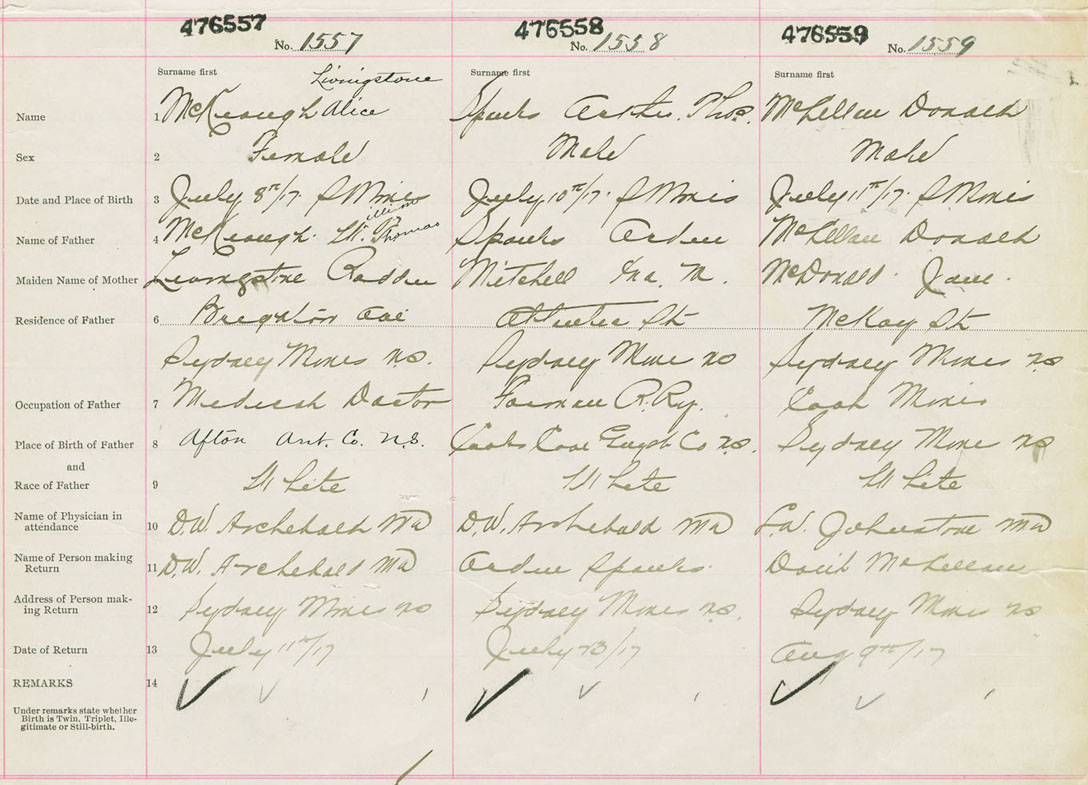 476557 476558 476559
No. 1557 No. 1558 No. 1559
Surname first Surname first Surname first
Livingstone
Name 1 McKeough Alice Spanks Arthur. Thos. McLellan Donald
Sex 2 Female Male Male
Date and Place of Birth 3 July 8th/17 S Mines July 10th/17. S Mines July 11th/17. S Mines
illiam
Name of Father 4 McKeough. W. P Thomas Spanks Arden McLellan Donald
Maiden Name of Mother Livingstone Mitchell Ina. M. McDonald. Jane.
Residence of Father 6 Brighton Ave St McKay St
Sydney Mines NS. Sydney Mine NS Sydney Mines NS
Occupation of Father 7 Medical Doctor Forman R.Ry. Coal Mines
Place of Birth of Father 8 Afton Ant. Co. N.S. Cooks Cove Guysb Co NS. Sydney Mine NS
and
Race of Father 9 White White White
Name of Physician in
attendance 10 D.W. Archebald MD D.W. Archebald MD L.W. Johnstone MD
Name of Person making
Return 11 D.W. Archebald MD Arden Spanks. McLellan
Address of Person mak-
ing Return 12 Sydney Mines NS Sydney Mines NS. Sydney Mines NS
Date of Return 13 July 11th/17 July 23/17 Aug 9th/17
REMARKS 14
Under remarks state whether
Birth is Twin, Triplet, Ille-
gitimate or Still-birth.